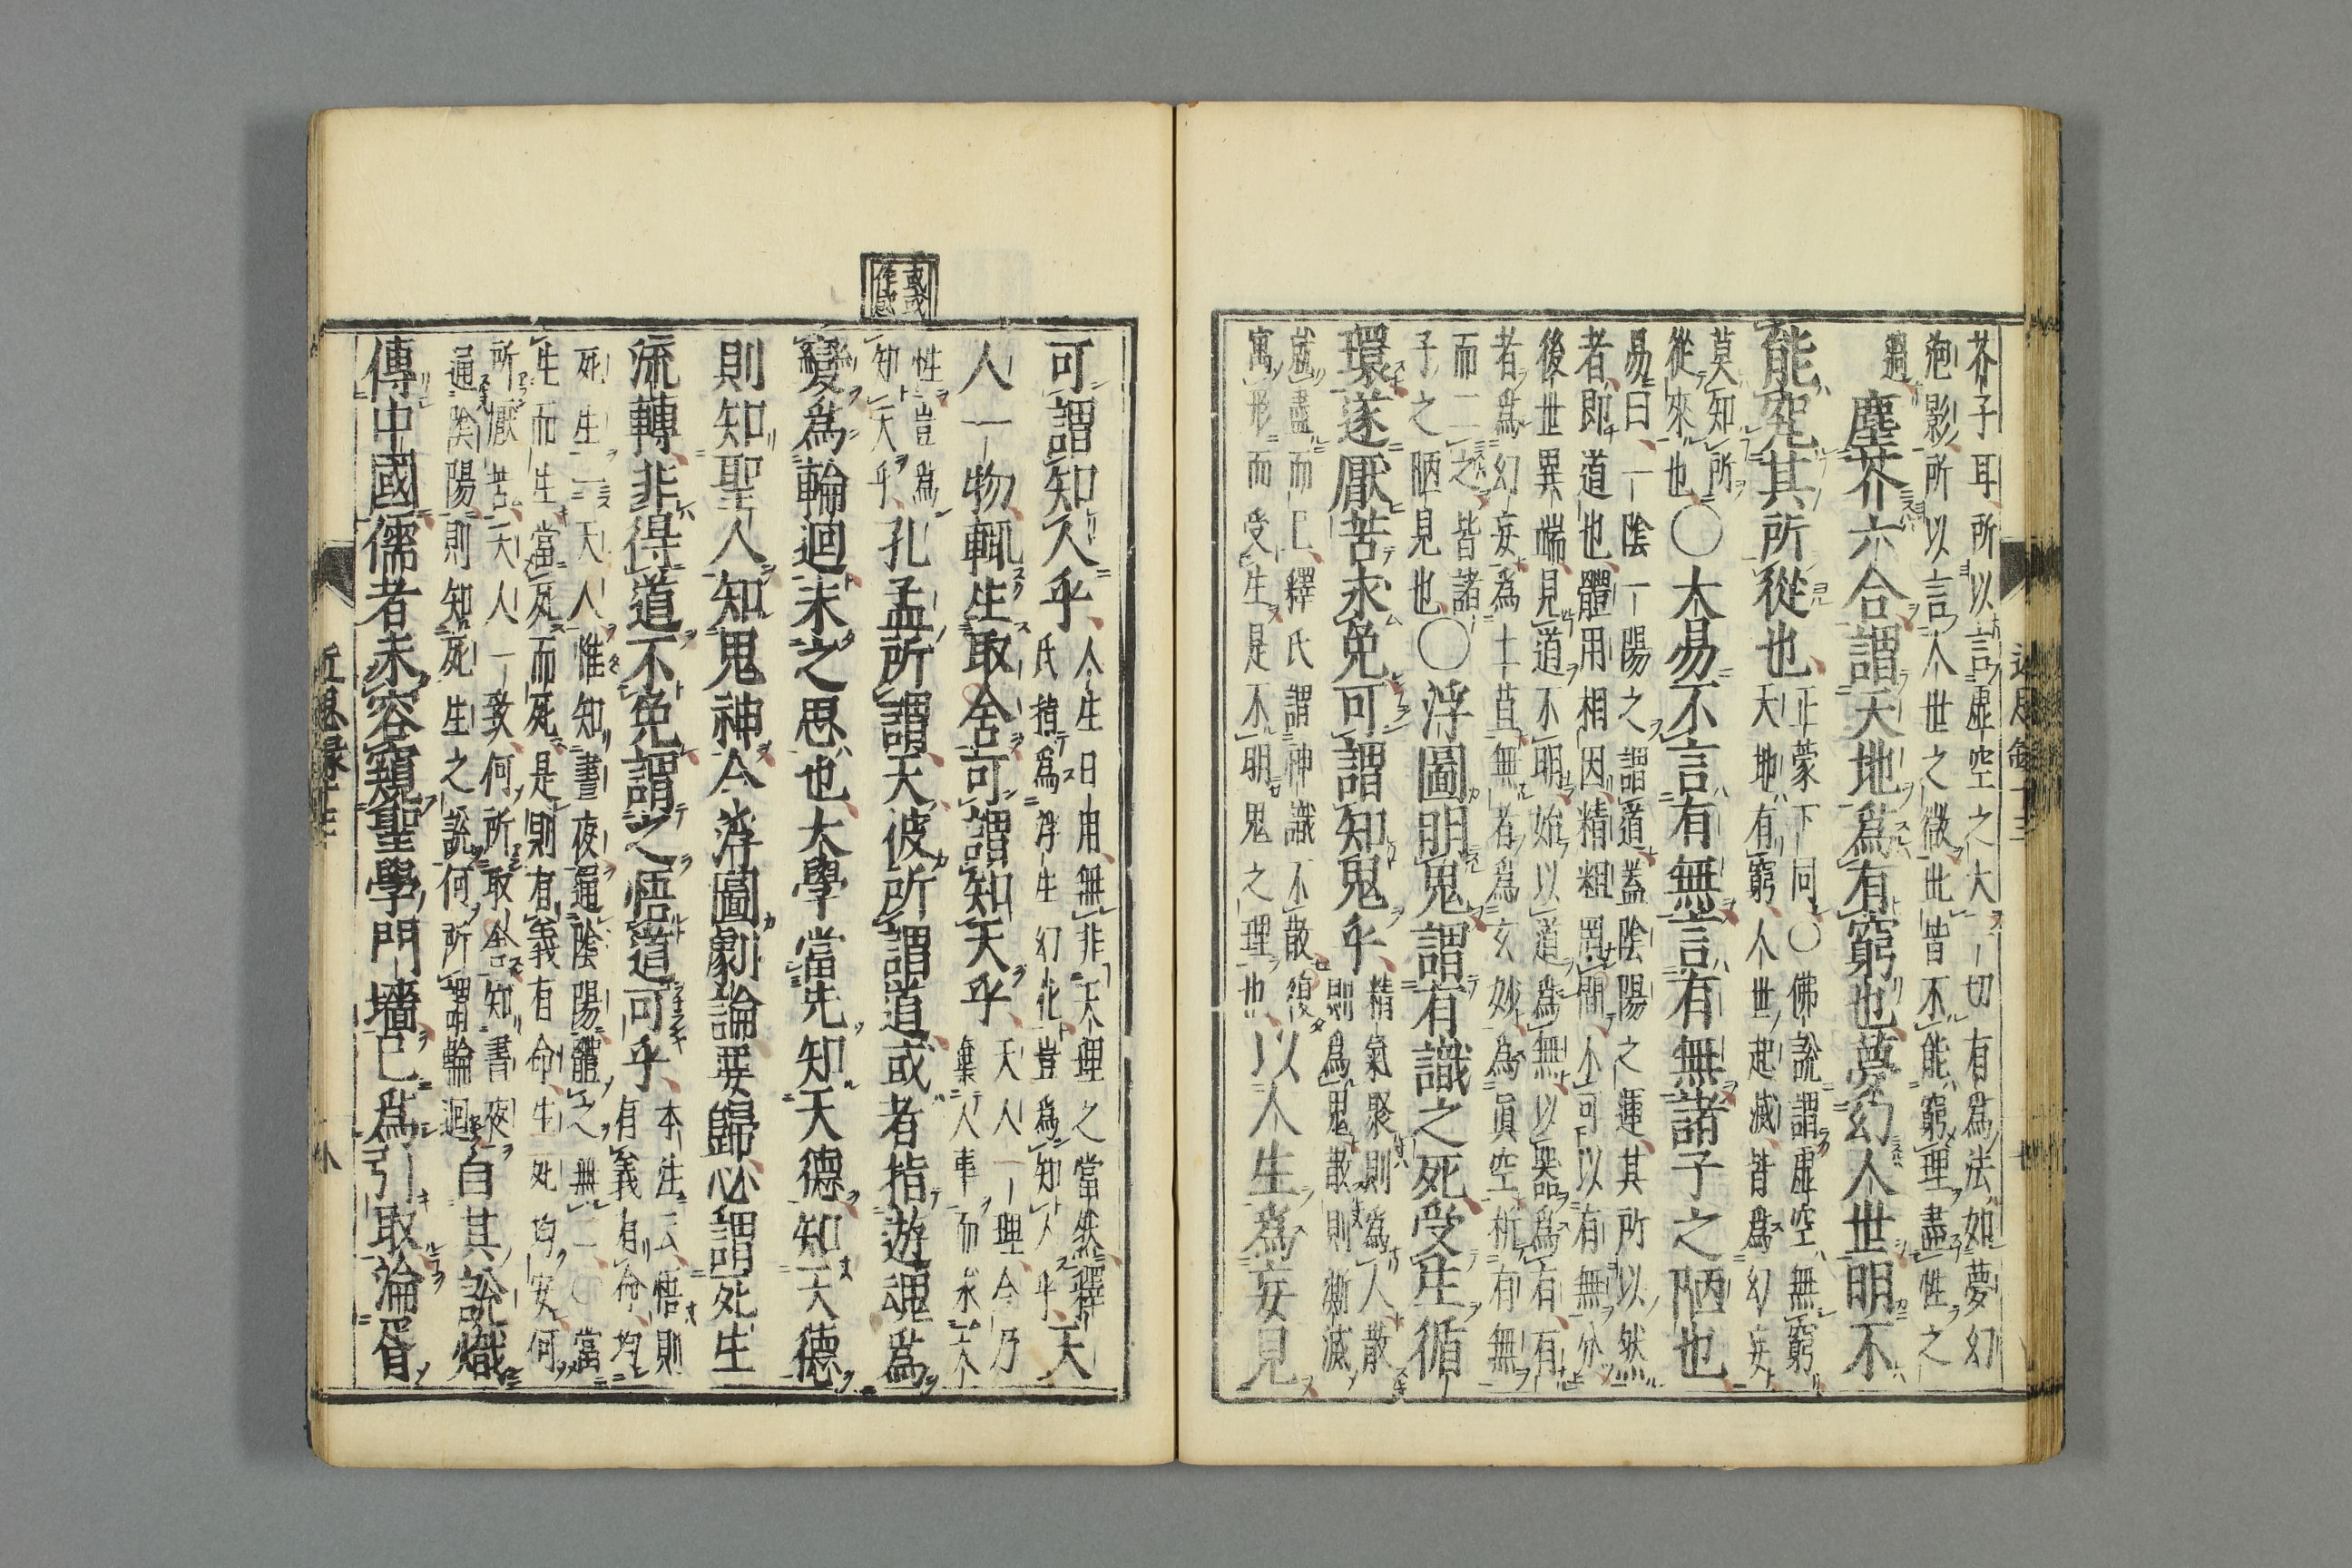 芥子耳所以言虛空之大一切有爲法如夢幻
泡影所以言人世之微此皆不能窮理盡性之
過
塵芥六合謂天地爲有窮也夢幻人世明不
能究其所從也
正蒙下同〇佛說謂虛空無窮
天地有窮人世起滅皆爲幻妄
莫知所
從來也
〇大易不言有無言有無諸子之陋也
易曰一陰一陽之謂道蓋陰陽之運其所以然
者即道也體用相因精粗罔間不可以有無分
後世異端見道不明始以道爲無以器爲有有
者爲幻妄爲土苴無者爲玄妙爲眞空析有無
而二之皆諸
子之陋見也
〇浮圖明鬼謂有識之死受生循
環遂厭苦求免可謂知鬼乎
精氣聚則爲人散
則爲鬼散則澌滅
就盡而已釋氏謂神識不散復
寓形而受生是不明鬼之理也
以人生爲妄見
可謂知人乎
人生日用無非天理之當然釋
氏指爲浮生幻化豈爲知人乎
天
人一物輒生取舍可謂知天乎
天人一理今乃
棄人事而求天
性豈爲
知天乎
孔孟所謂天彼所謂道或者指遊魂爲
變爲輪迴未之思也大學當先知天德知天德
則知聖人知鬼神今浮圖劇論要歸必謂死生
流轉非得道不免謂之悟道可乎
本註云悟則
有義有命均
死生一天人惟知晝夜通陰陽體之無二〇當
生而生當死而死是則有義有命生死均安何
所厭苦天人一致何所取舍知晝夜
通陰陽則知死生之說何所謂輪迴
自其說熾
傳中國儒者未容窺聖學門墻已爲引取淪胥
惑或
作感
近思錄十三